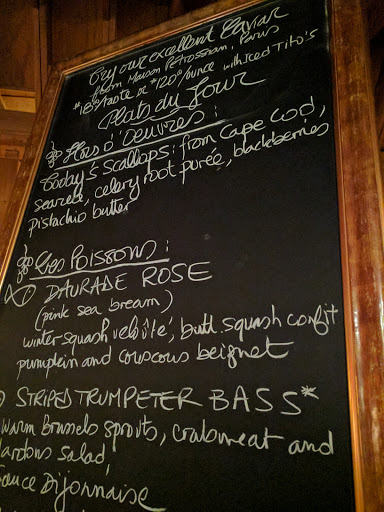 Try our excellent Caviar
from Maison Petrossian, Paris
$18°°/taste or $120°°/ounce with Iced Tito's
Plats du Jour
Hors d'Oeuvres:
Today's scallops: from Cape Cod,
seared, celery root purée, blackberries
pistachio butter
Les Poissons:
1) DAURADE ROSE
(pink sea bream)
winter squash velouté, butt. squash confit
pumpkin and couscous beignet
) STRIPED TRUMPETER BASS*
warm Brussels sprouts, crabmeat and
lardons salad,
Sauce Dijonnaise